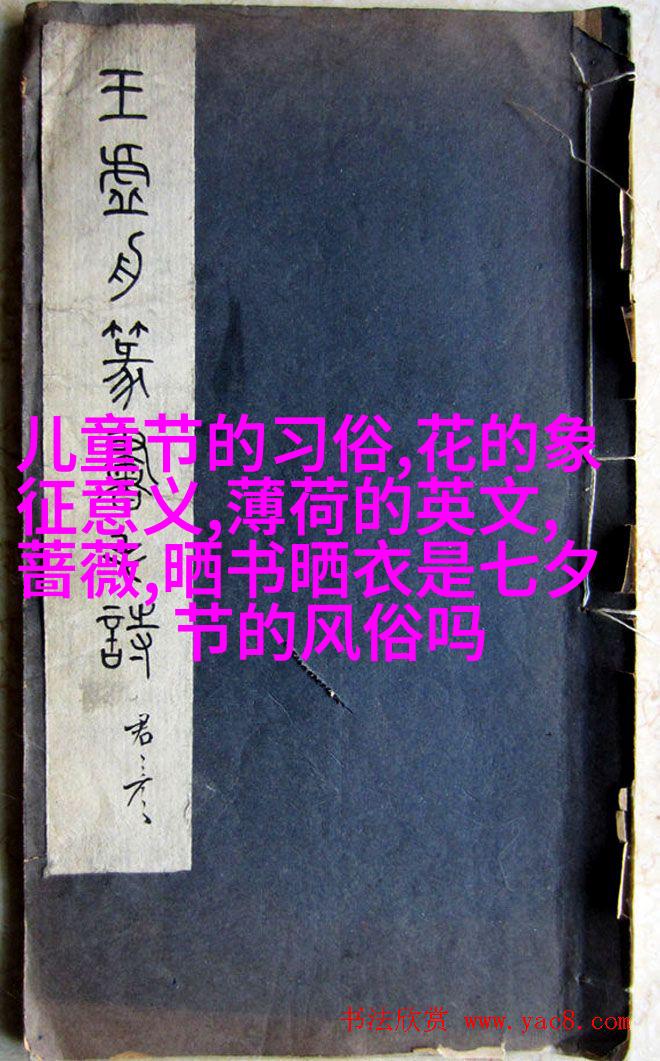 王虚舟篆 詩
儿童节的习俗,花的象
征意义,薄荷的英文,
蔷薇,晒书晒衣是七夕
节的风俗吗
书法欣赏 www.yac8.com